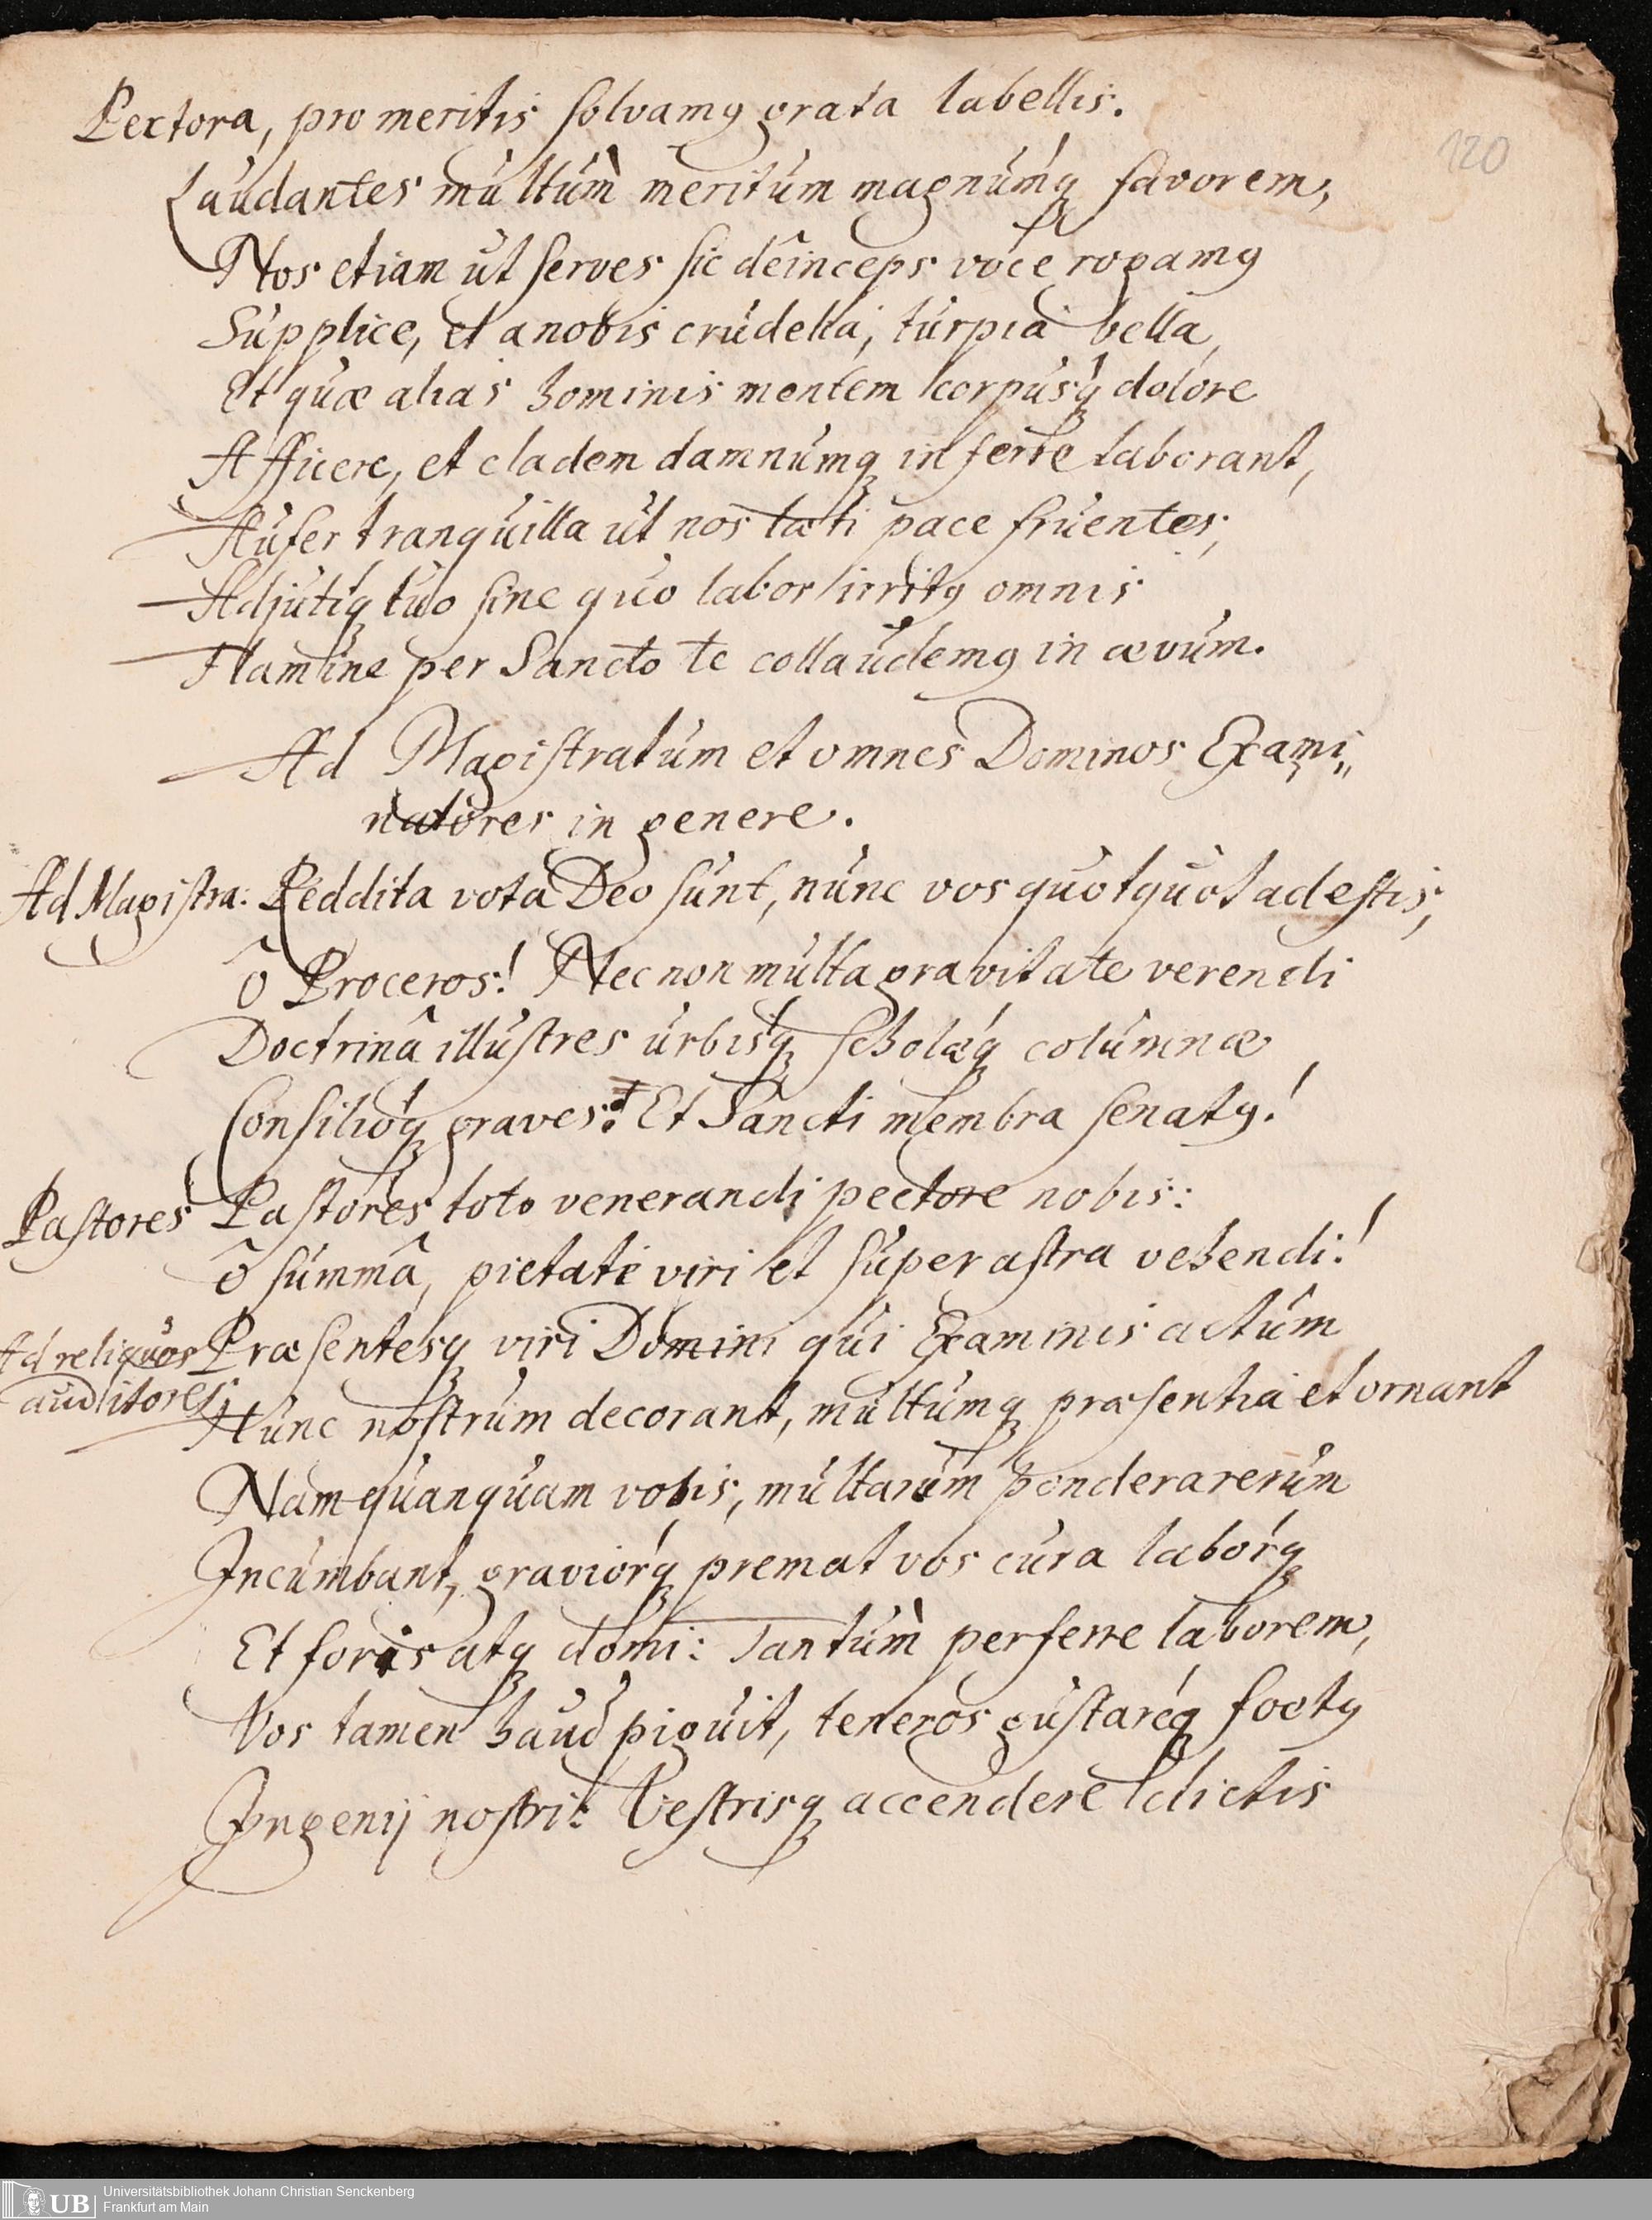 120
Pectora, pro meritis solvamꝰ grata labellis.
Laudantes multùm meritum magnumq́ꝫ favorem,
Nos etiam ut serves sic deînceps voce rogamꝰ
Supplice, et a nobis crudelia, turpia bella,
Et quæ alias hominis mentem corpusq́ꝫ dolore
Afficere, et cladem damnumqꝫ inferre laborant,
Aufer tranquilla ut nos læti pace fruentes,
Adjutiq́ꝫ tuo sine quo labor irritꝰ omnis
Flamine per Sancto te collaudemꝰ in ævum.
Ad Magistratum et omnes Dominos Exami„
natores in genere.
Ad Magistra: Reddita vota Deo sunt, nunc vos quotquot adestis,
ô Proceros! Nec non multa gravitate verendi
Doctrinâ illustres urbisq́ꝫ scholæq́ꝫ columnæ
Consilioq́ꝫ graves! Et Sancti membra senatꝰ!
Pastores Pastores toto venerandi pectore nobis:
ô summâ, pietate viri et super astra vehendi!
Ad reliquos Præsentesqꝫ viri Domini qui Examinis actum
auditores, Hunc nostrum decorant, multumqꝫ præsentia et ornant
Nam quanquam vobis, multarum pondera rerum
Incumbant, graviorq́ꝫ premat vos cura laborq́ꝫ
Et foris atqꝫ domi: Tantùm perferre laborem,
Vos tamen haud piguit, teneros gustareq́ꝫ foetꝰ
Ingenij nostri: Vestrisqꝫ accendere dictis
UB Universitätsbibliothek Johann Christian Senckenberg
Frankfurt am Main